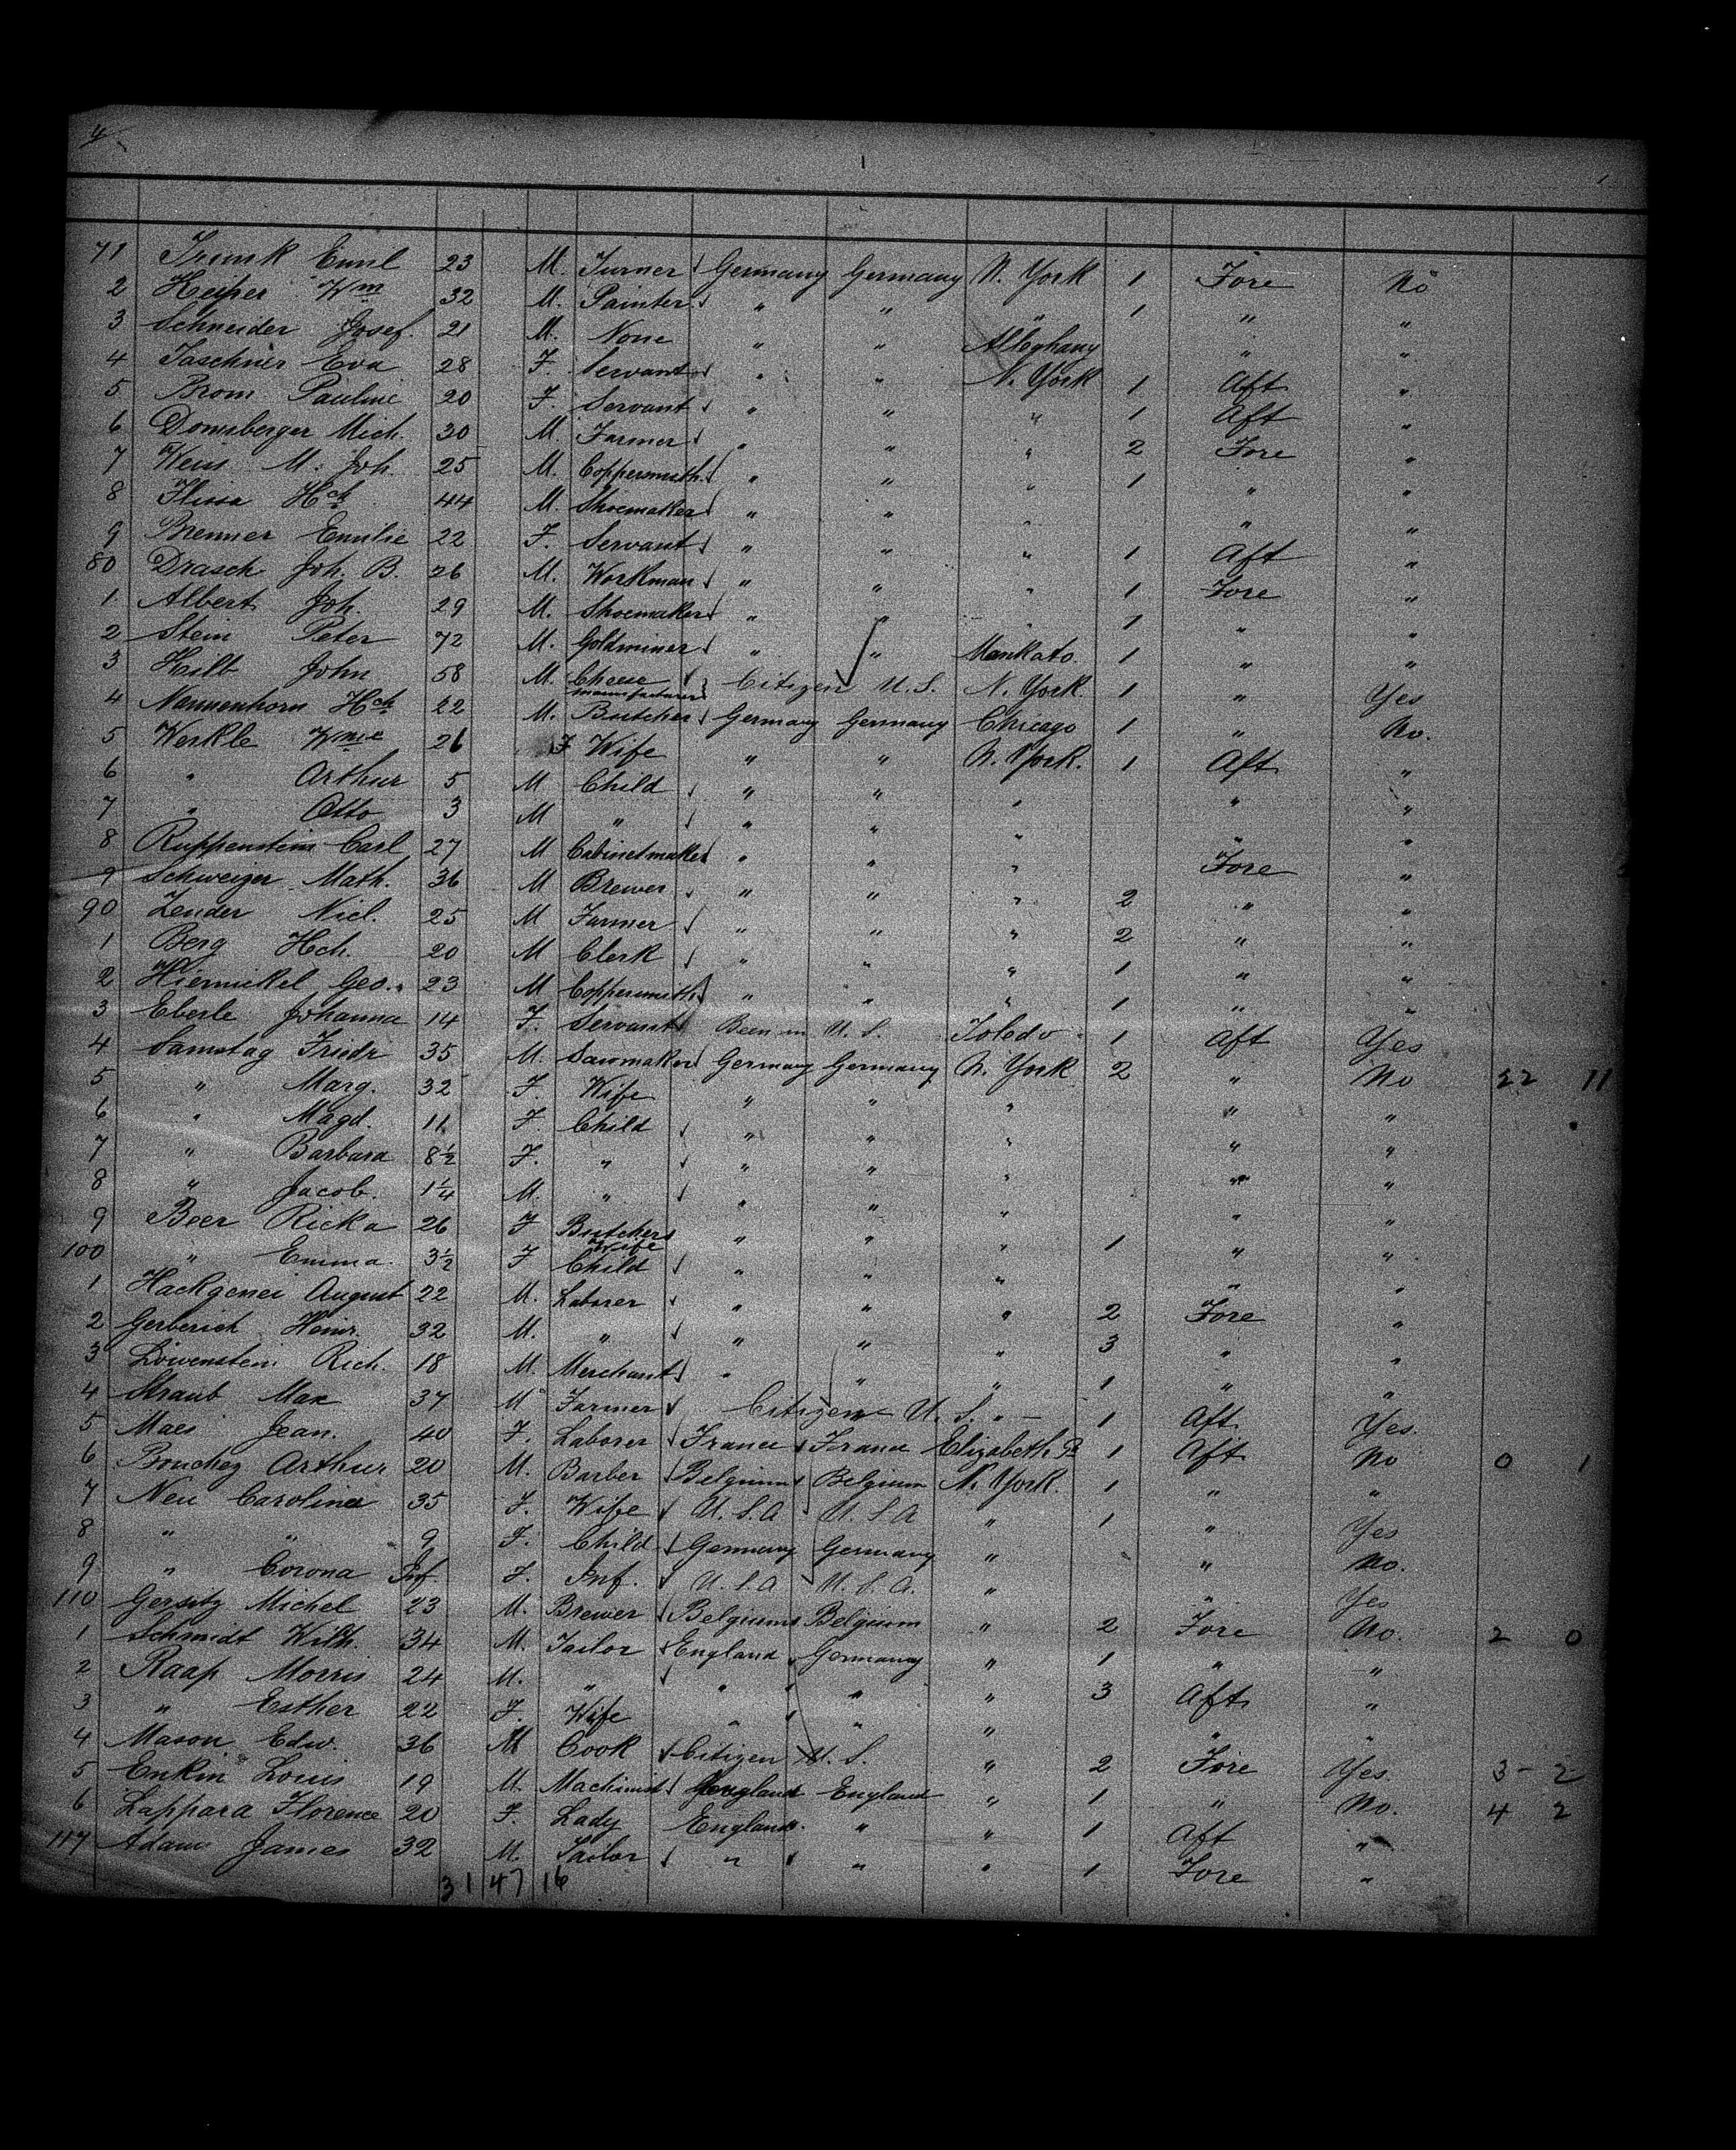 4
71 Trunk Emil 23 M. Turner Germany Germany N. York 1 Fore No
2 Keiper Wm 32 M. Painter " " " 1 " "
3 Schneider Josef. 21 M. None " " Alleghany " "
4 Taschner Eva 28 F. Servant " " N. York 1 Aft "
5 Brom Pauline 20 F. Servant " " " 1 Aft "
6 Donnsberger Mich. 30 M. Farmer " " " 2 Fore "
7 Weiss M. Joh. 25 M. Coppersmith " " " 1 " "
8 Hch 44 M. Shoemaker " " " " "
9 Brenner Emilie 22 F. Servant " " " 1 Aft "
80 Drasch Joh. B. 26 M. Workman " " " 1 Fore "
1 Albert Joh. 29 M. Shoemaker " " " 1 " "
2 Stein Peter 72 M. Goldminer " " Mankato 1 " "
3 Hilb John 58 M. Cheese manufacturer Citizen U.S. N. York. 1 " Yes
4 Nannenhorn Hch 22 M. Butcher Germany Germany Chicago 1 " No.
5 Werkle Wmie 26 F Wife " " N. York. 1 Aft "
6 " Arthur 5 M Child " " " " "
7 " Otto 3 M " " " " " "
8 Ruppenstein Carl 27 M Cabinetmaker " " " Fore "
9 Schweizer Math. 36 M Brewer " " " 2 " "
90 Zender Nicl. 25 M Farmer " " " 2 " "
1 Berg Hch. 20 M Clerk " " " 1 " "
2 Hiernickel Geo. 23 M Coppersmith " " " 1 " "
3 Eberle Johanna 14 F. Servant Been in U.S. Toledo 1 Aft Yes
4 Samstag Friedr 35 M. Sawmaker Germany Germany N. York 2 " No 22 11
5 " Marg. 32 F. Wife " " " " "
6 " Magd. 11 F. Child " " " " "
7 " Barbara 8½ F. " " " " " "
8 " Jacob. 1¼ M. " " " " " "
9 Beer Ricka 26 F Butchers Wife " " " 1 " "
100 " Emma. 3½ F Child " " " " "
1 Hackgenei August 22 M. Laborer " " " 2 Fore "
2 Gerberich Heinr. 32 M. " " " " 3 " "
3 Löwenstein Rich. 18 M Merchant " " " 1 " "
4 Straub Max 37 M Farmer Citizen U.S. " 1 Aft Yes.
5 Maes Jean. 40 F. Laborer France France Elizabeth 1 Aft No 0 1
6 Bouchez Arthur 20 M. Barber Belgium Belgium N. York. 1 " "
7 Neu Carolina 35 F. Wife U.S.A U.S.A " 1 " Yes
8 " " 9 F. Child Germany Germany " " No.
9 " Corona Inf. F. Inf. U.S.A U.S.A. " " Yes
110 Gersitz Michel 23 M. Brewer Belgium Belgium " 2 Fore No. 2 0
1 Schmidt Wilh. 34 M. Tailor England Germany " 1 " "
2 Raap Morris 24 M. " " " " 3 Aft "
3 " Esther 22 F. Wife " " " " "
4 Mason Edw. 36 M Cook Citizen U.S. " 2 Fore Yes 3 - 2
5 Enkin Louis 19 M. Machinist England England " 1 " No. 4 2
6 Lappara Florence 20 F. Lady England " " 1 Aft "
117 Adams James 32 M. Sailor " " " 1 Fore "
31 47 16